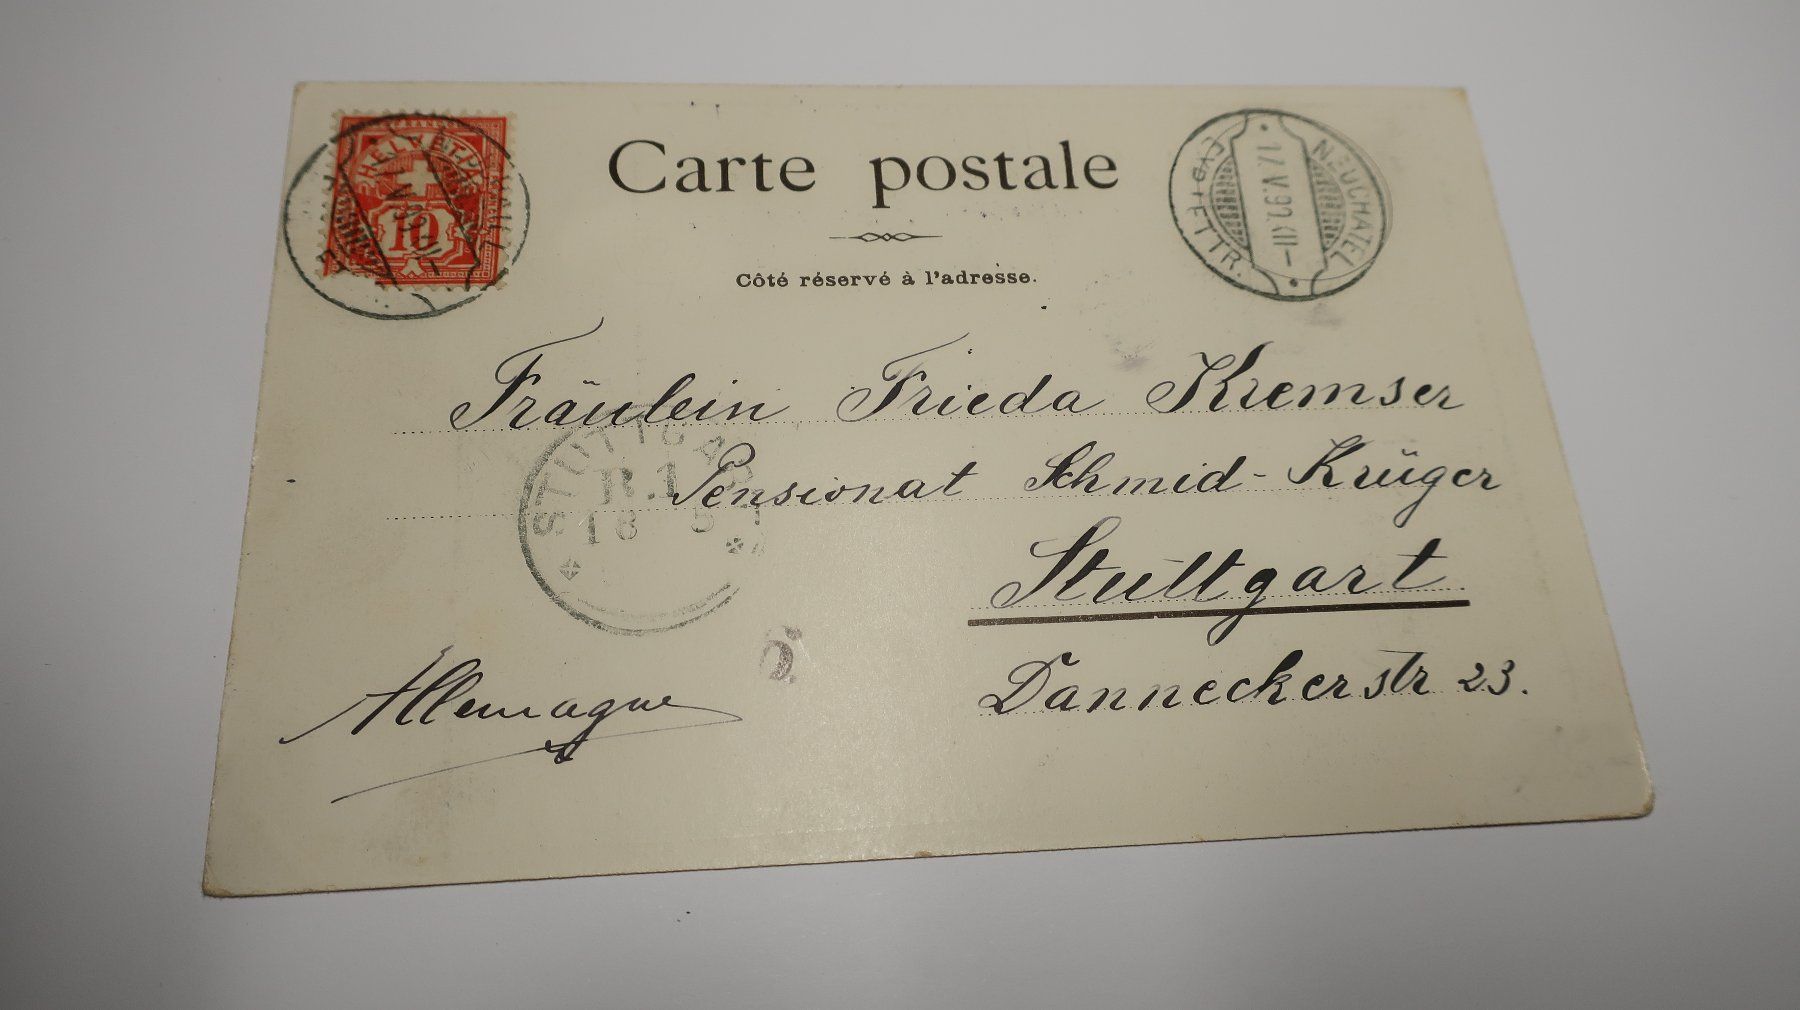 Carte postale
Côté réservé à l'adresse.
FRANCO
HELVETIA
10
NEUCHATEL
17.V.99.XII-
EXP. LETTR.
Fräulein Frieda Kremser
Pensionat Schmid-Krüger
Stuttgart
Danneckerstr 23.
STUTTGART
R.1
18 5
Allemagne